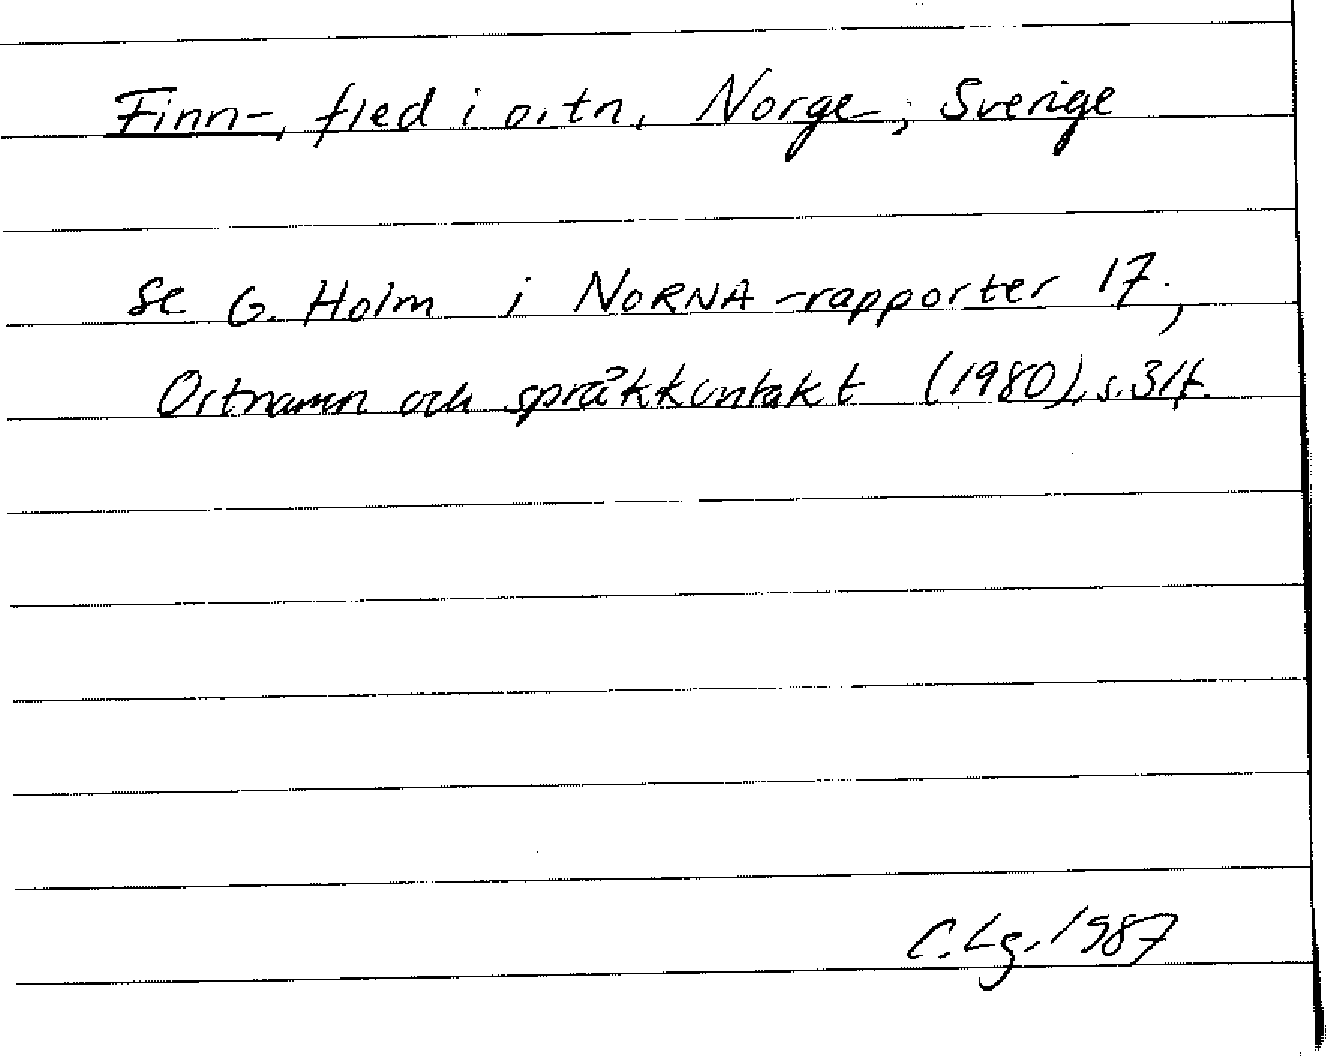 Finn-, fled i ortn, Norge, Sverige
se G. Holm i NORNA-rapporter 17.,
Ortnamn och språkkontakt (1980), s.31f.
C.Lg. 1987